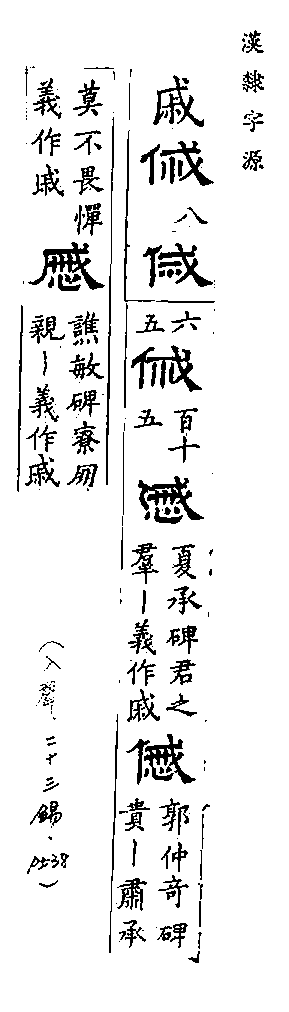 漢隸字源
戚
八
六
五
百十
五
夏承碑君之
羣ー義作戚
郭仲奇碑
貴ー肅承
莫不畏憚
義作戚
慼
譙敏碑寮朋
親ー義作戚
(入聲、二十三錫、